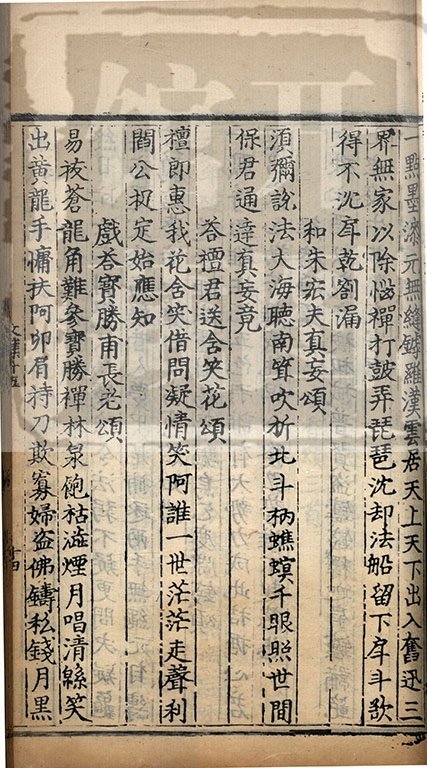 一點墨漆元無縫罅羅漢雲居天上天下出入奮迅三
界無家以除惱禪打皷弄琵琶沈却法船留下戽斗歌
得不沈戽乾劄漏
和朱宏夫真妄頌
須彌說法大海聽南箕吹折北斗柄蟭螟千眼照世間
保君通達真妄竟
荅檀君送含笑花頌
檀郎惠我花含笑借問凝情笑阿誰一世茫茫走聲利
閻公扠定始應知
戲荅寶勝甫長老頌
易拔蒼龍角難參寶勝禪林泉飽枯澁煙月唱清緜笑
出黄龍手慵扶阿卯肩持刀欺寡婦盗佛鑄私錢月黒
文集十五
十四